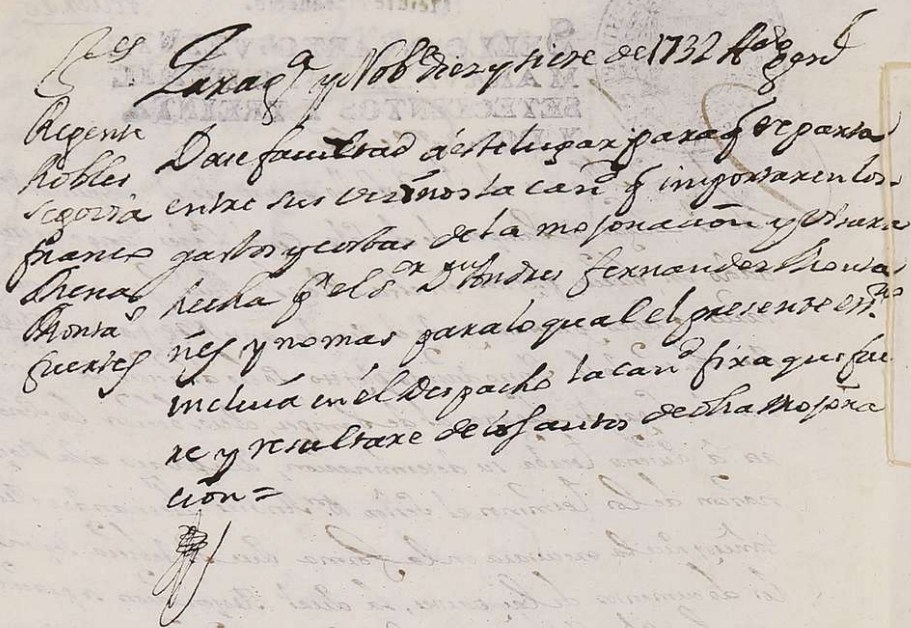 SSes
Regente
Robles
Segovia
franco
Mena
Monta
fuertes
Zarag.a y Nob.e diez y siete de 1732 Ac.do gen.l
Dase facultad á este lugar para q se parta
entre sus vezinos la can.d q importaren los
gastos y costas de la mojonacion y Visura
hecha p.r el S.or D.n Andres fernandez Monta
ñes y no mas para lo qual el presente es.no
incluia en el Despacho la can.d fixa que fue
re y resultare de los autos de dha Mojona
cion =